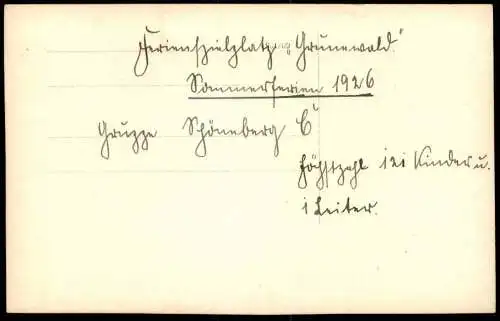 Ferienspielplatz „Grunewald“
Sommerferien 1926
Gruppe Schöneberg C
Höchstzahl 121 Kinder u.
1 Leiter.